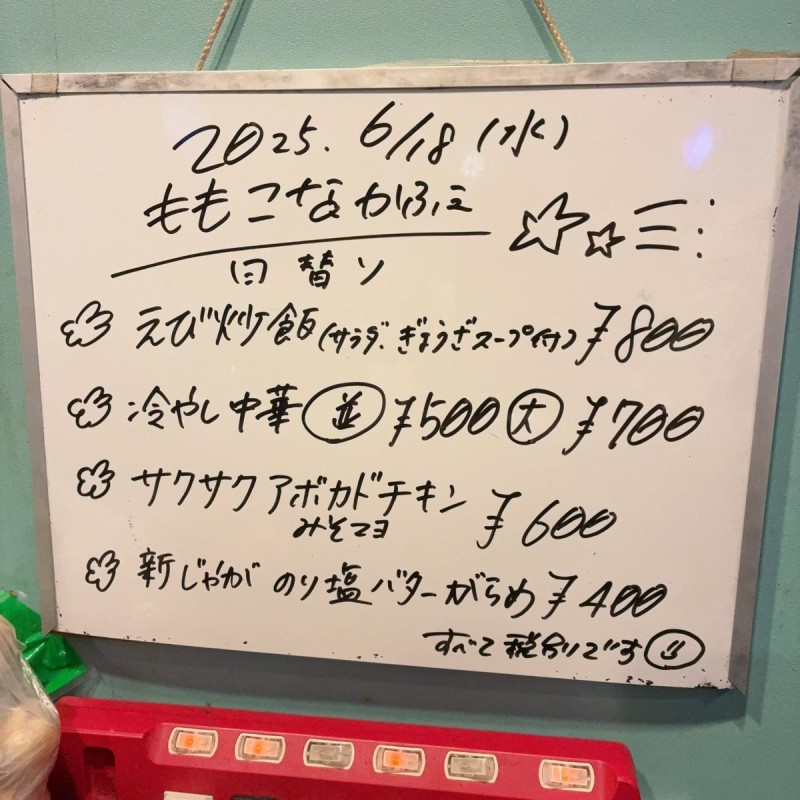 2025. 6/18 (水)
ももこなかふぇ
日替り
えび炒飯 (サラダ、ぎょうざスープ付) ¥800
冷やし中華 並 ¥500 大 ¥700
サクサクアボカドチキン ¥600
みそマヨ
新じゃが のり塩バターがらめ ¥400
すべて税別です